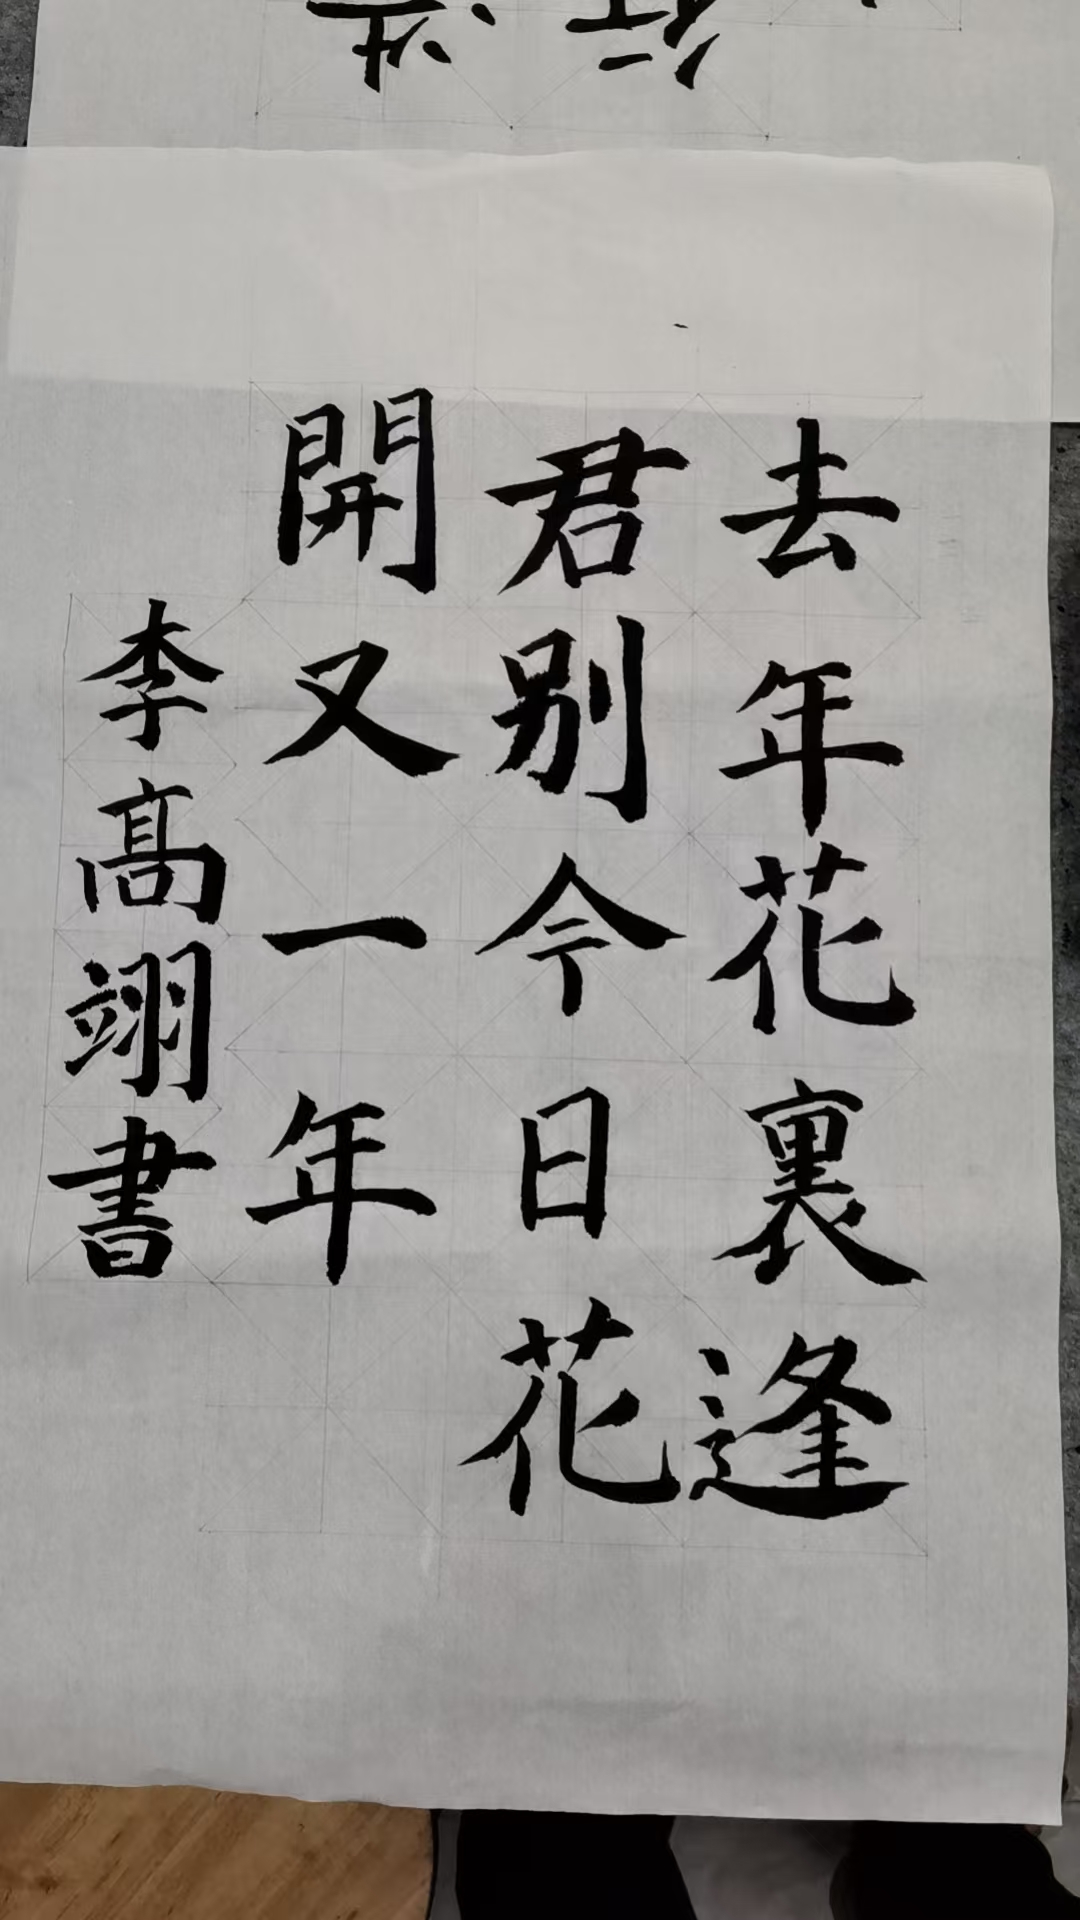 去年花裏逢
君别今日花
開又一年
李高翊書